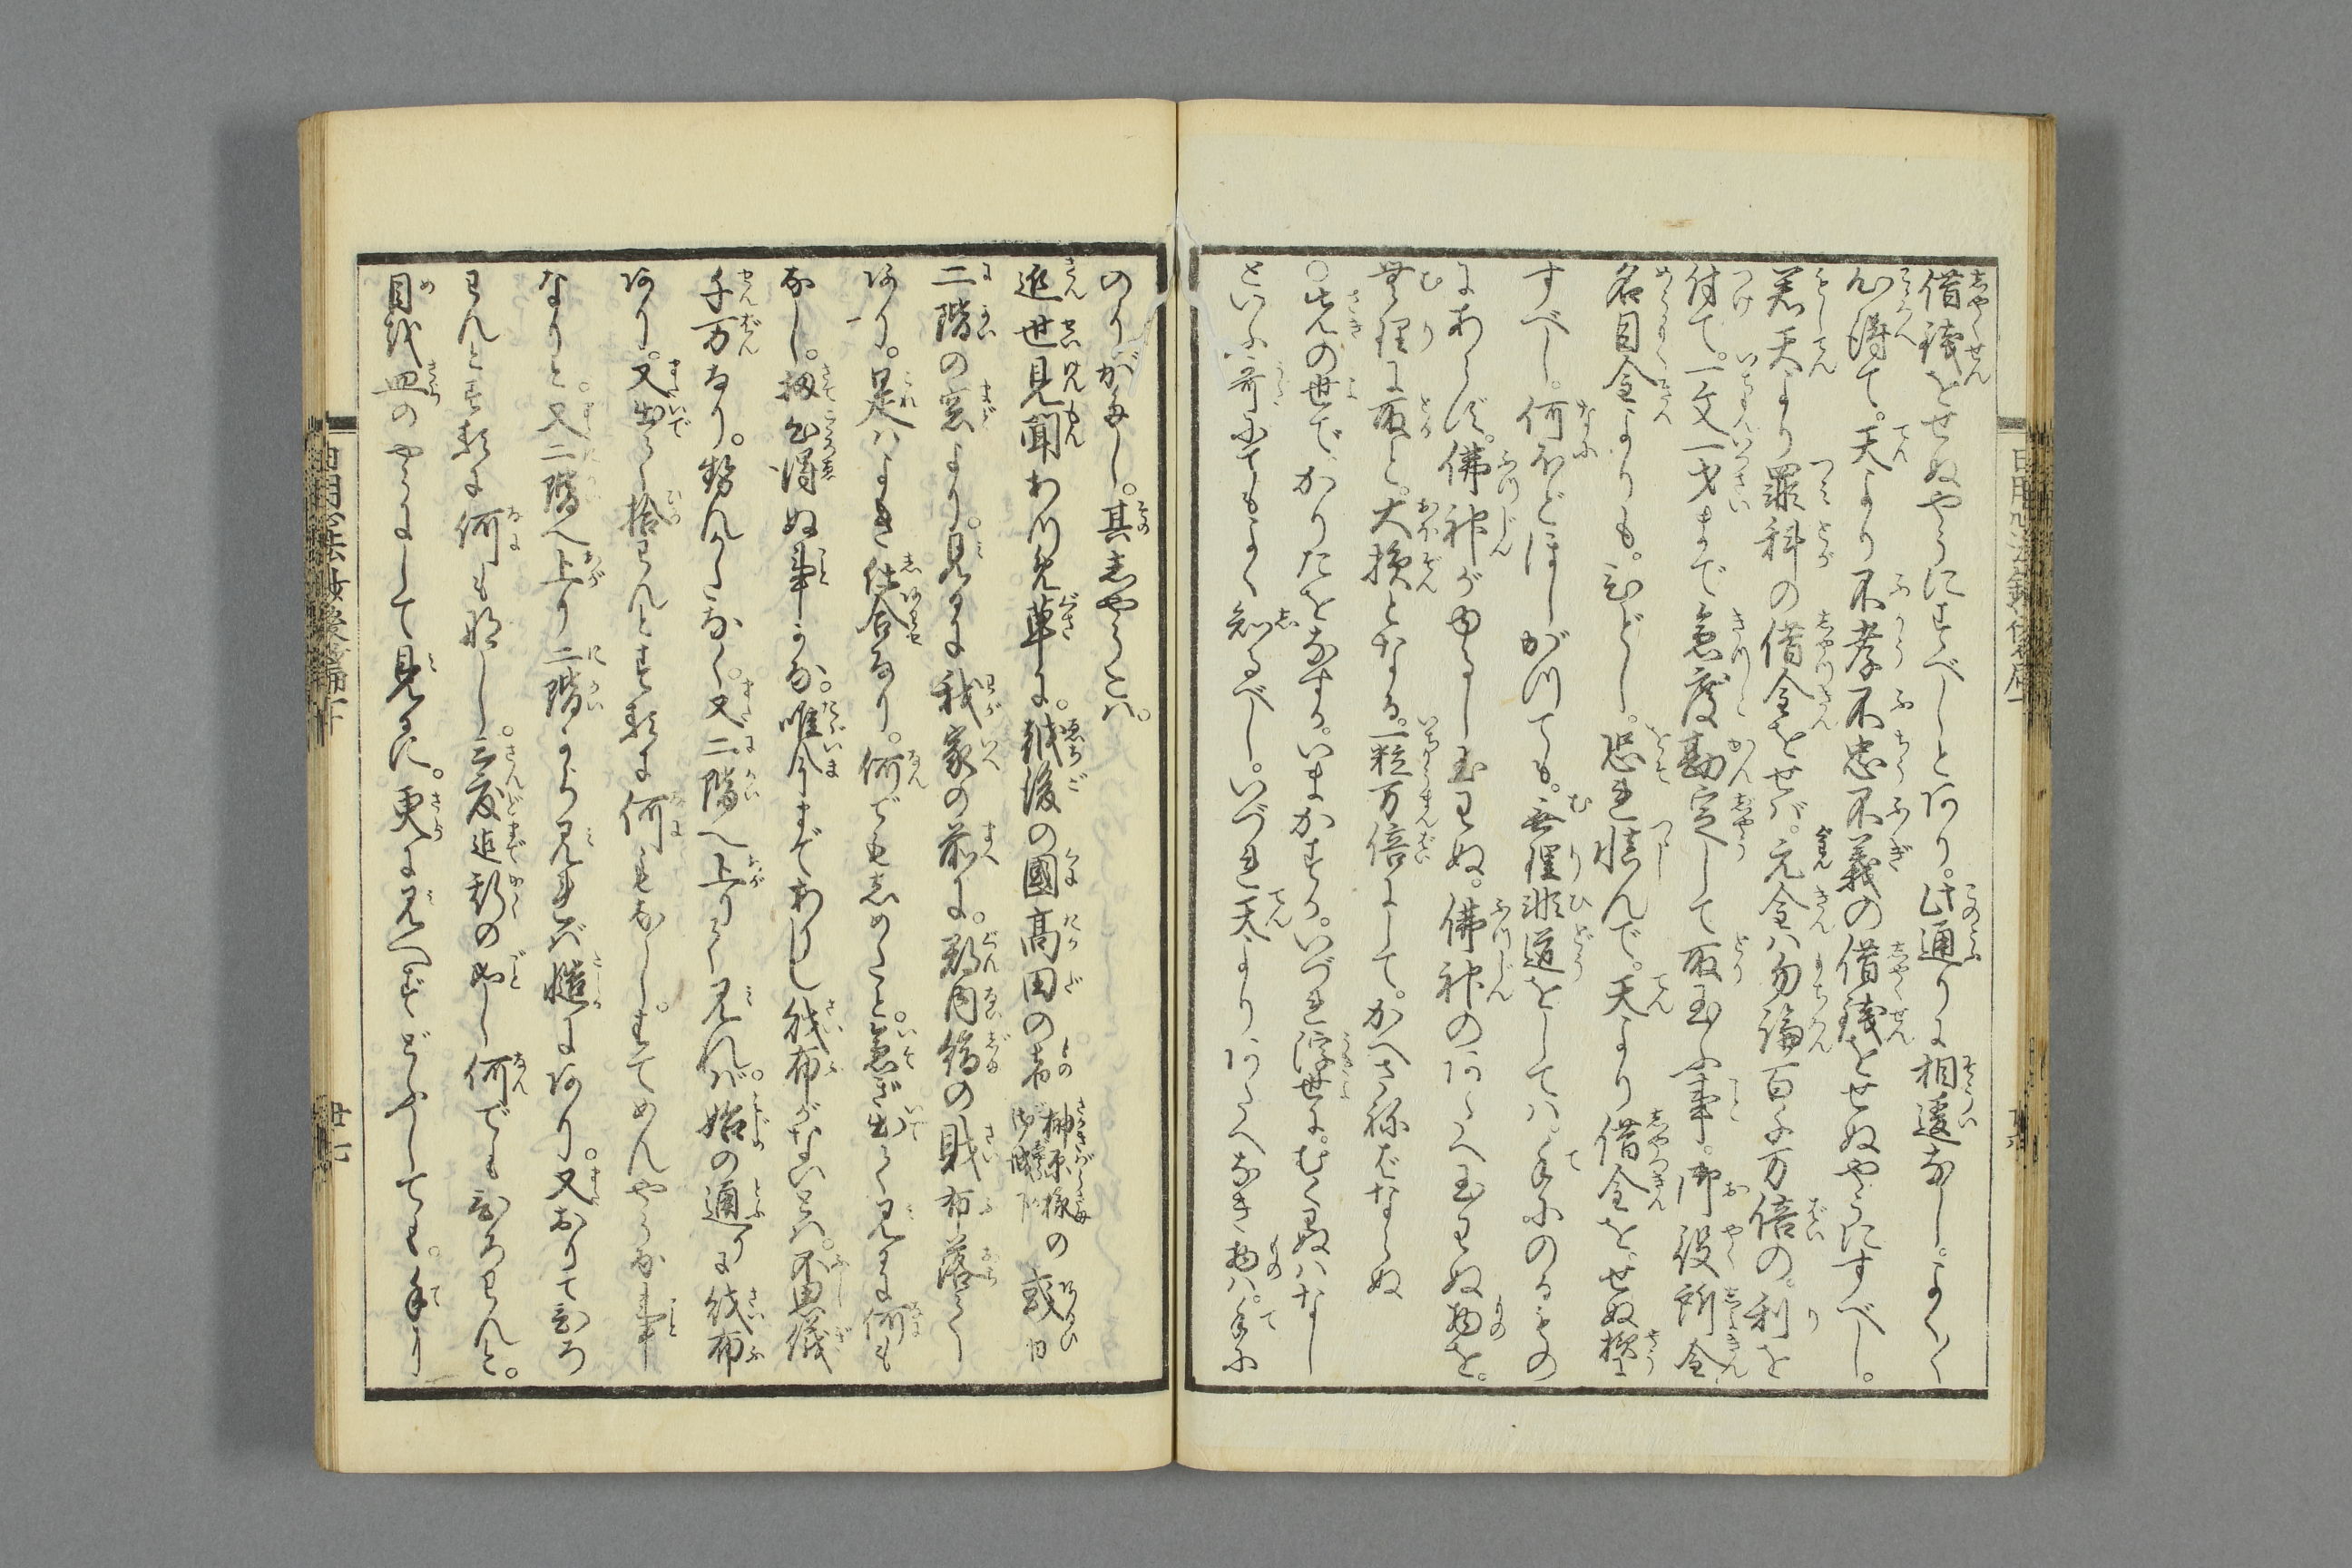 借銭をせぬやうにすべしとあり。此通りに相違なし。よく〳〵
心得て。天より不孝不忠不義の借銭をせぬやうにすべし。
若天より罪科の借金をせバ。元金ハ勿論百千万倍の。利を
付て。一文一才まで急度勘定して取玉ふ事。御役所金
名目金よりも。ひどし。恐れ慎んで。天より借金を。せぬ様に
すべし。何ほどほしがつても。無理非道をしてハ。手にのるもの
にあらず。佛神がゆるし玉わぬ。佛神のあたへ玉わぬ物を。
無理に取と。大損となる。一粒万倍にして。かへさねばならぬ
○先の世で、かりたをなする。いまかする。いづれ浮世に。むくゐハなし
といふ哥にてもよく知るべし。いづれ天よりあたへなき物ハ。手に
のりがたし。其志やうこハ。
近世見聞わつ免草に。越後の國高田の市 榊原様御城下の或日
二階の窓より。見るに我家の前に。郡内縞の財布落て
あり。是ハよき仕合なり。何でも志めたと。急ぎ出て見るに何も
なし。扨心得ぬ事かな。唯今までありし財布がないとハ。不思儀
千万なり。勢んかたなく。又二階へ上りて見れバ。始の通りに財布
あり。又出て拾わんとするに何もなし。はてめんやうな事
なりと。又二階へ上り二階から見れバ慥にあり。又おりてひろ
わんとするに何も那し。三度迄斯の如し何でもひろわんと。
目を皿のやうにして見るに。更に見へずどふしても。手り